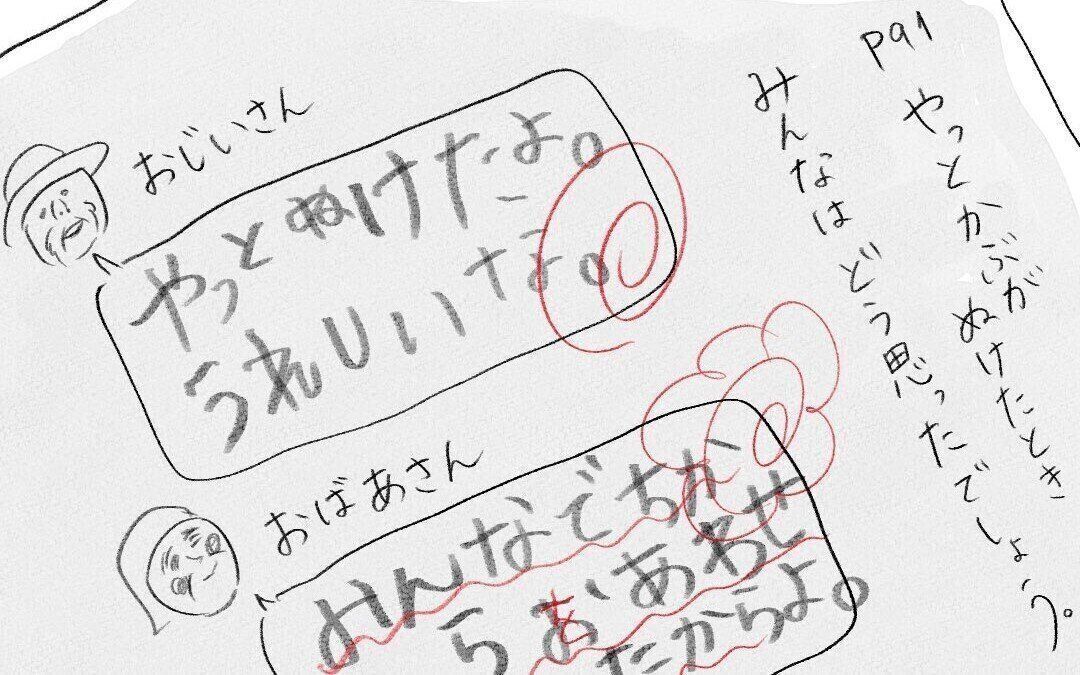 p91
やっとかぶがぬけたとき
みんなはどう思ったでしょう。
おじいさん
やっとぬけたよ。
うれしいな。
おばあさん
みんなでちか
らを、あわせ
たからよ。